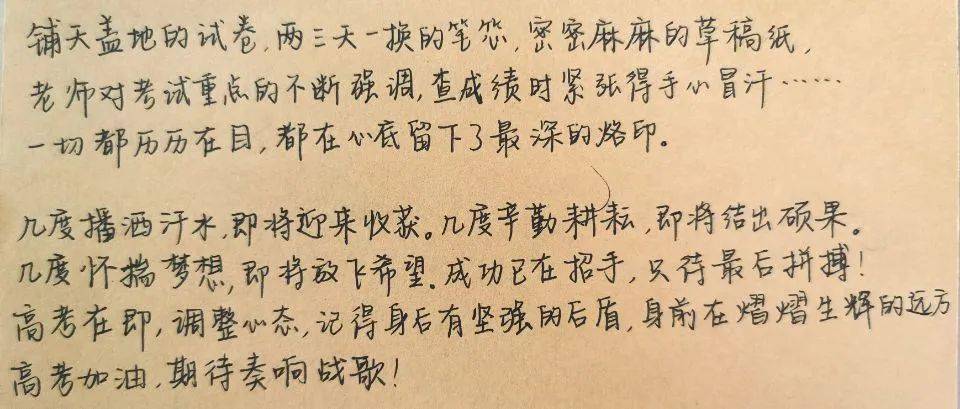 铺天盖地的试卷,两三天一换的笔芯,密密麻麻的草稿纸,
老师对考试重点的不断强调,查成绩时紧张得手心冒汗……
一切都历历在目,都在心底留下了最深的烙印。
几度播洒汗水,即将迎来收获。几度辛勤耕耘,即将结出硕果。
几度怀揣梦想,即将放飞希望。成功已在招手,只待最后拼搏!
高考在即,调整心态,记得身后有坚强的后盾,身前在熠熠生辉的远方
高考加油,期待奏响战歌!